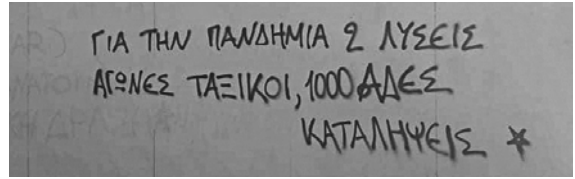 ΓΙΑ ΤΗΝ ΠΑΝΔΗΜΙΑ 2 ΛΥΣΕΙΣ
ΑΓΩΝΕΣ ΤΑΞΙΚΟΙ, 1000ΑΔΕΣ
ΚΑΤΑΛΗΨΕΙΣ ★